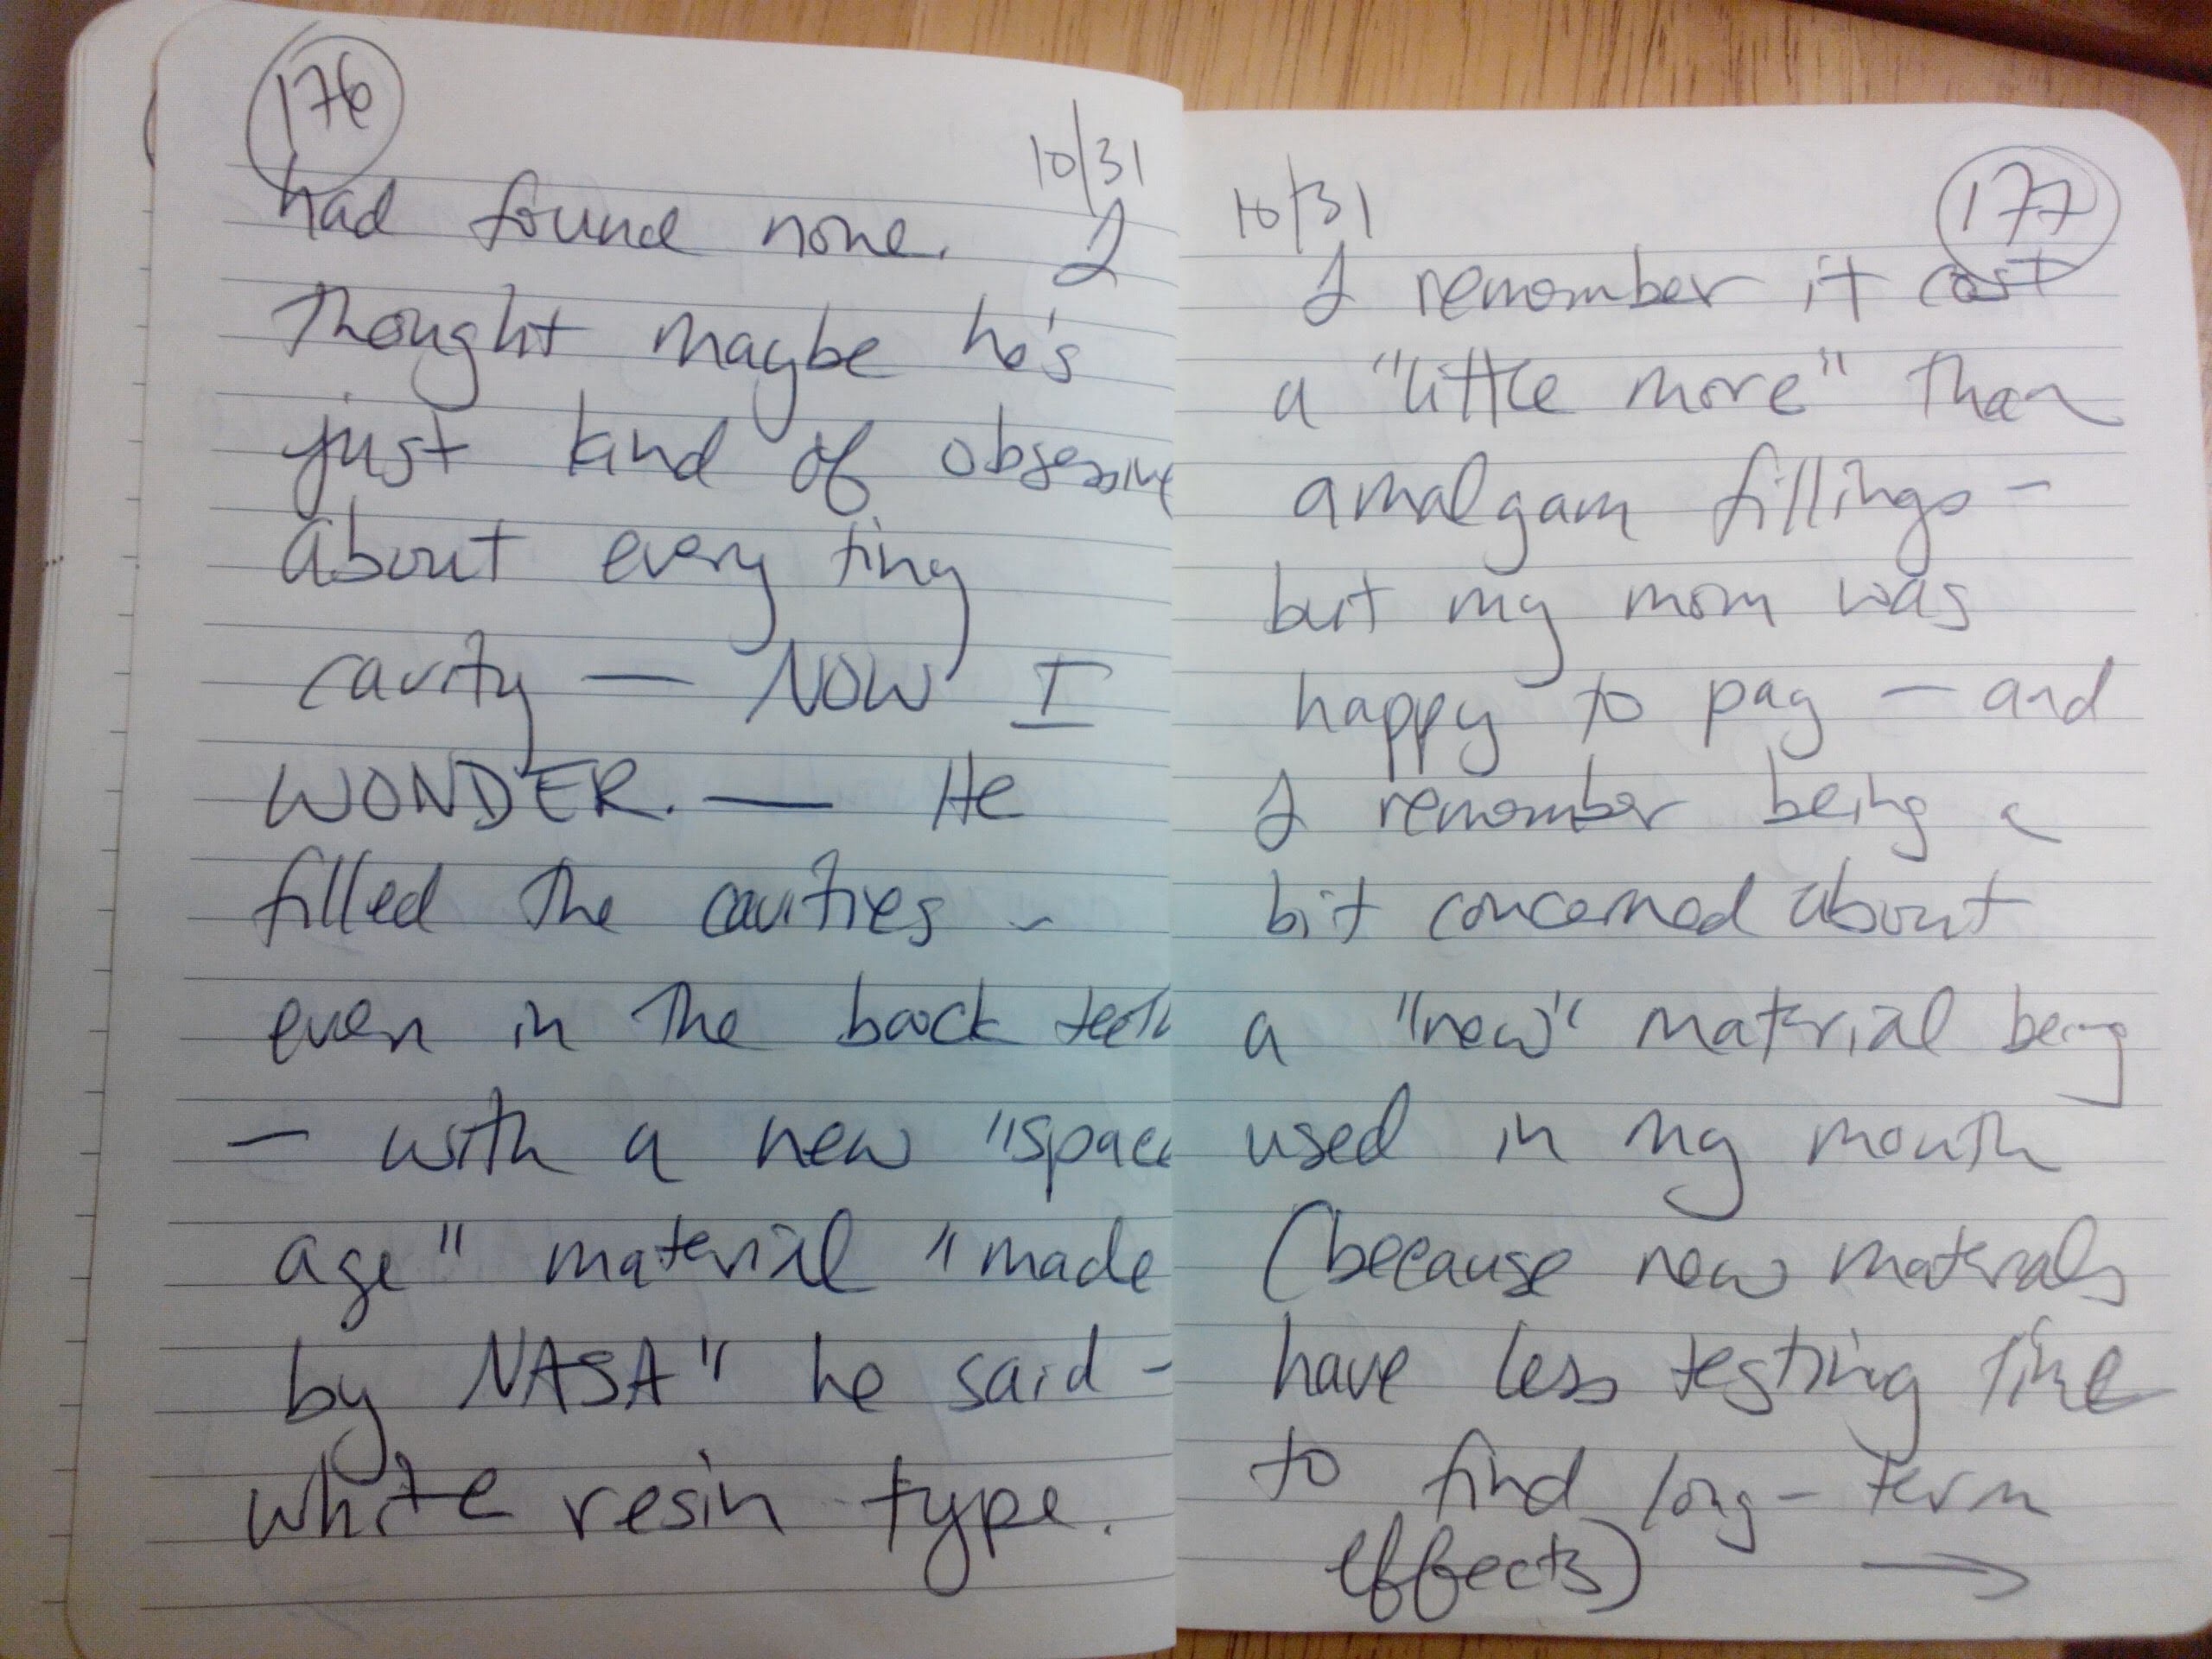 176
10/31
had found none. I
thought maybe he's
just kind of obsessive
about every tiny
cavity — NOW I
WONDER. — He
filled the cavities -
even in the back teeth
— with a new "space
age" material "made
by NASA" he said -
white resin type.
10/31
177
I remember it cost
a "little more" than
amalgam fillings -
but my mom was
happy to pay — and
I remember being a
bit concerned about
a "new" material being
used in my mouth
(because new materials
have less testing time
to find long-term
effects) →